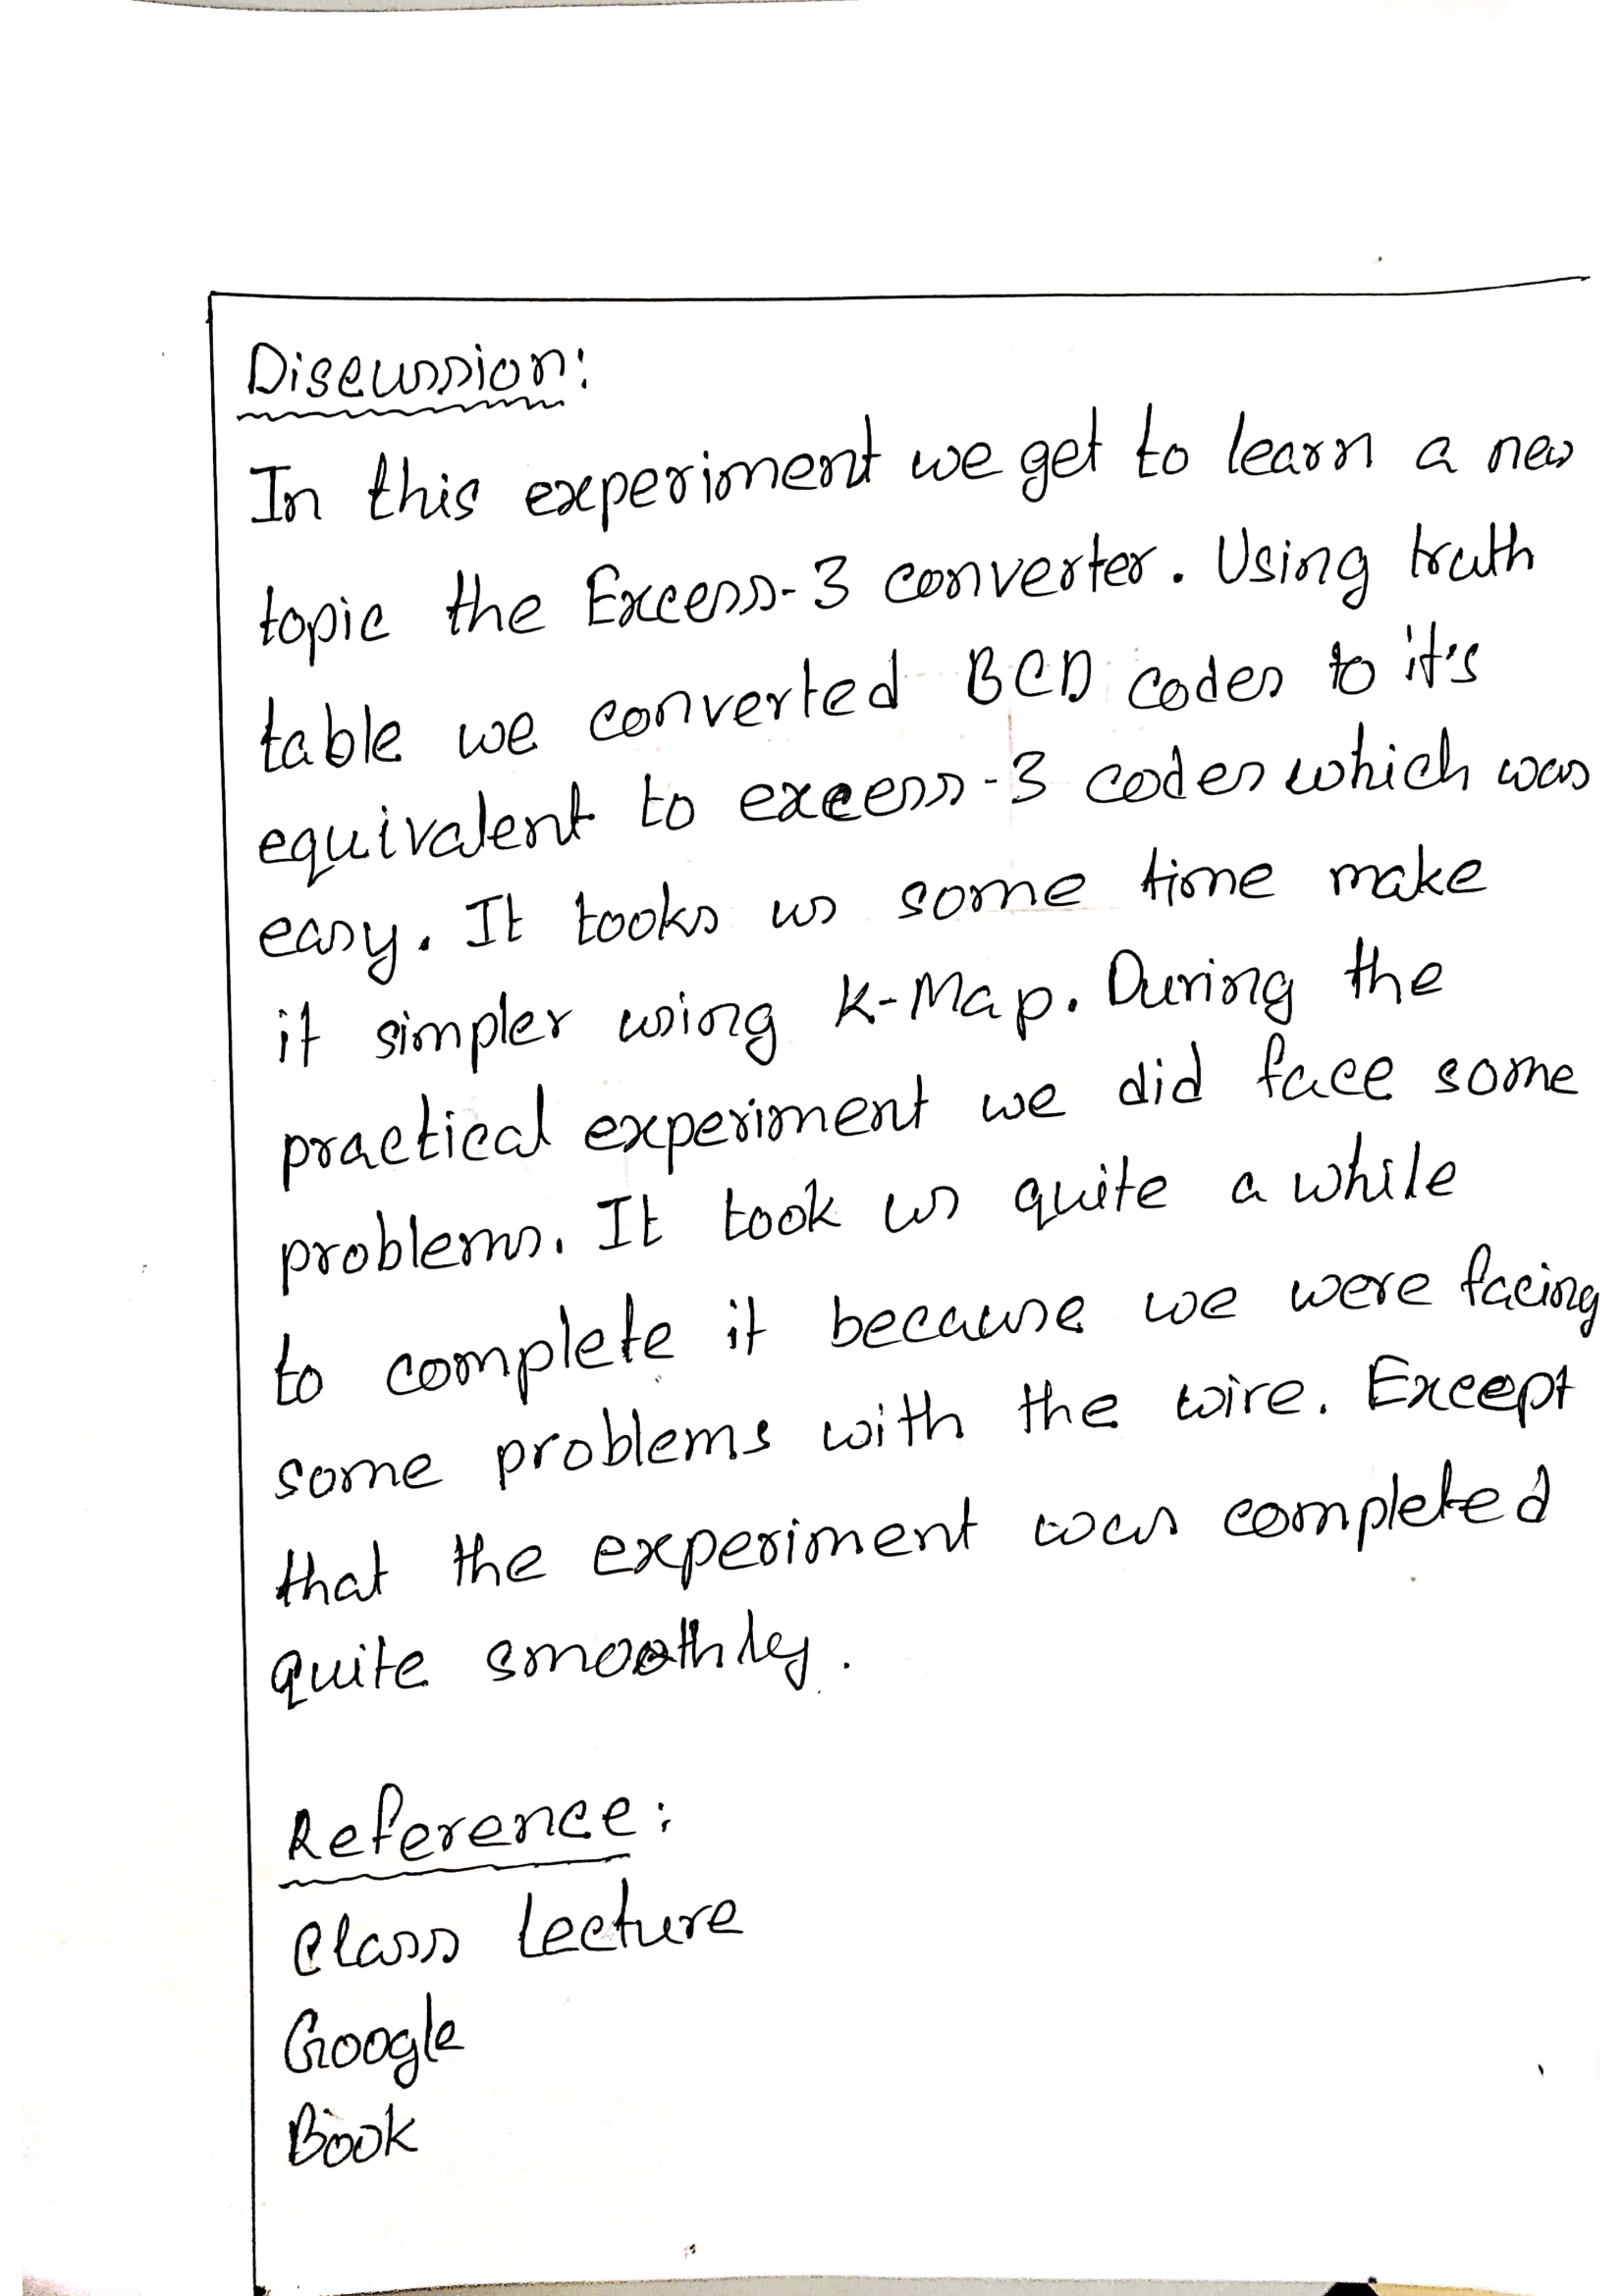 Discussion:
In this experiment we get to learn a new
topic the Excess-3 converter. Using truth
table we converted BCD codes to it's
equivalent to excess-3 codes which was
easy. It tooks us some time make
it simpler using K-Map. During the
practical experiment we did face some
problems. It took us quite a while
to complete it because we were facing
some problems with the wire. Except
that the experiment was completed
quite smoothly.
Reference:
Class Lecture
Google
Book